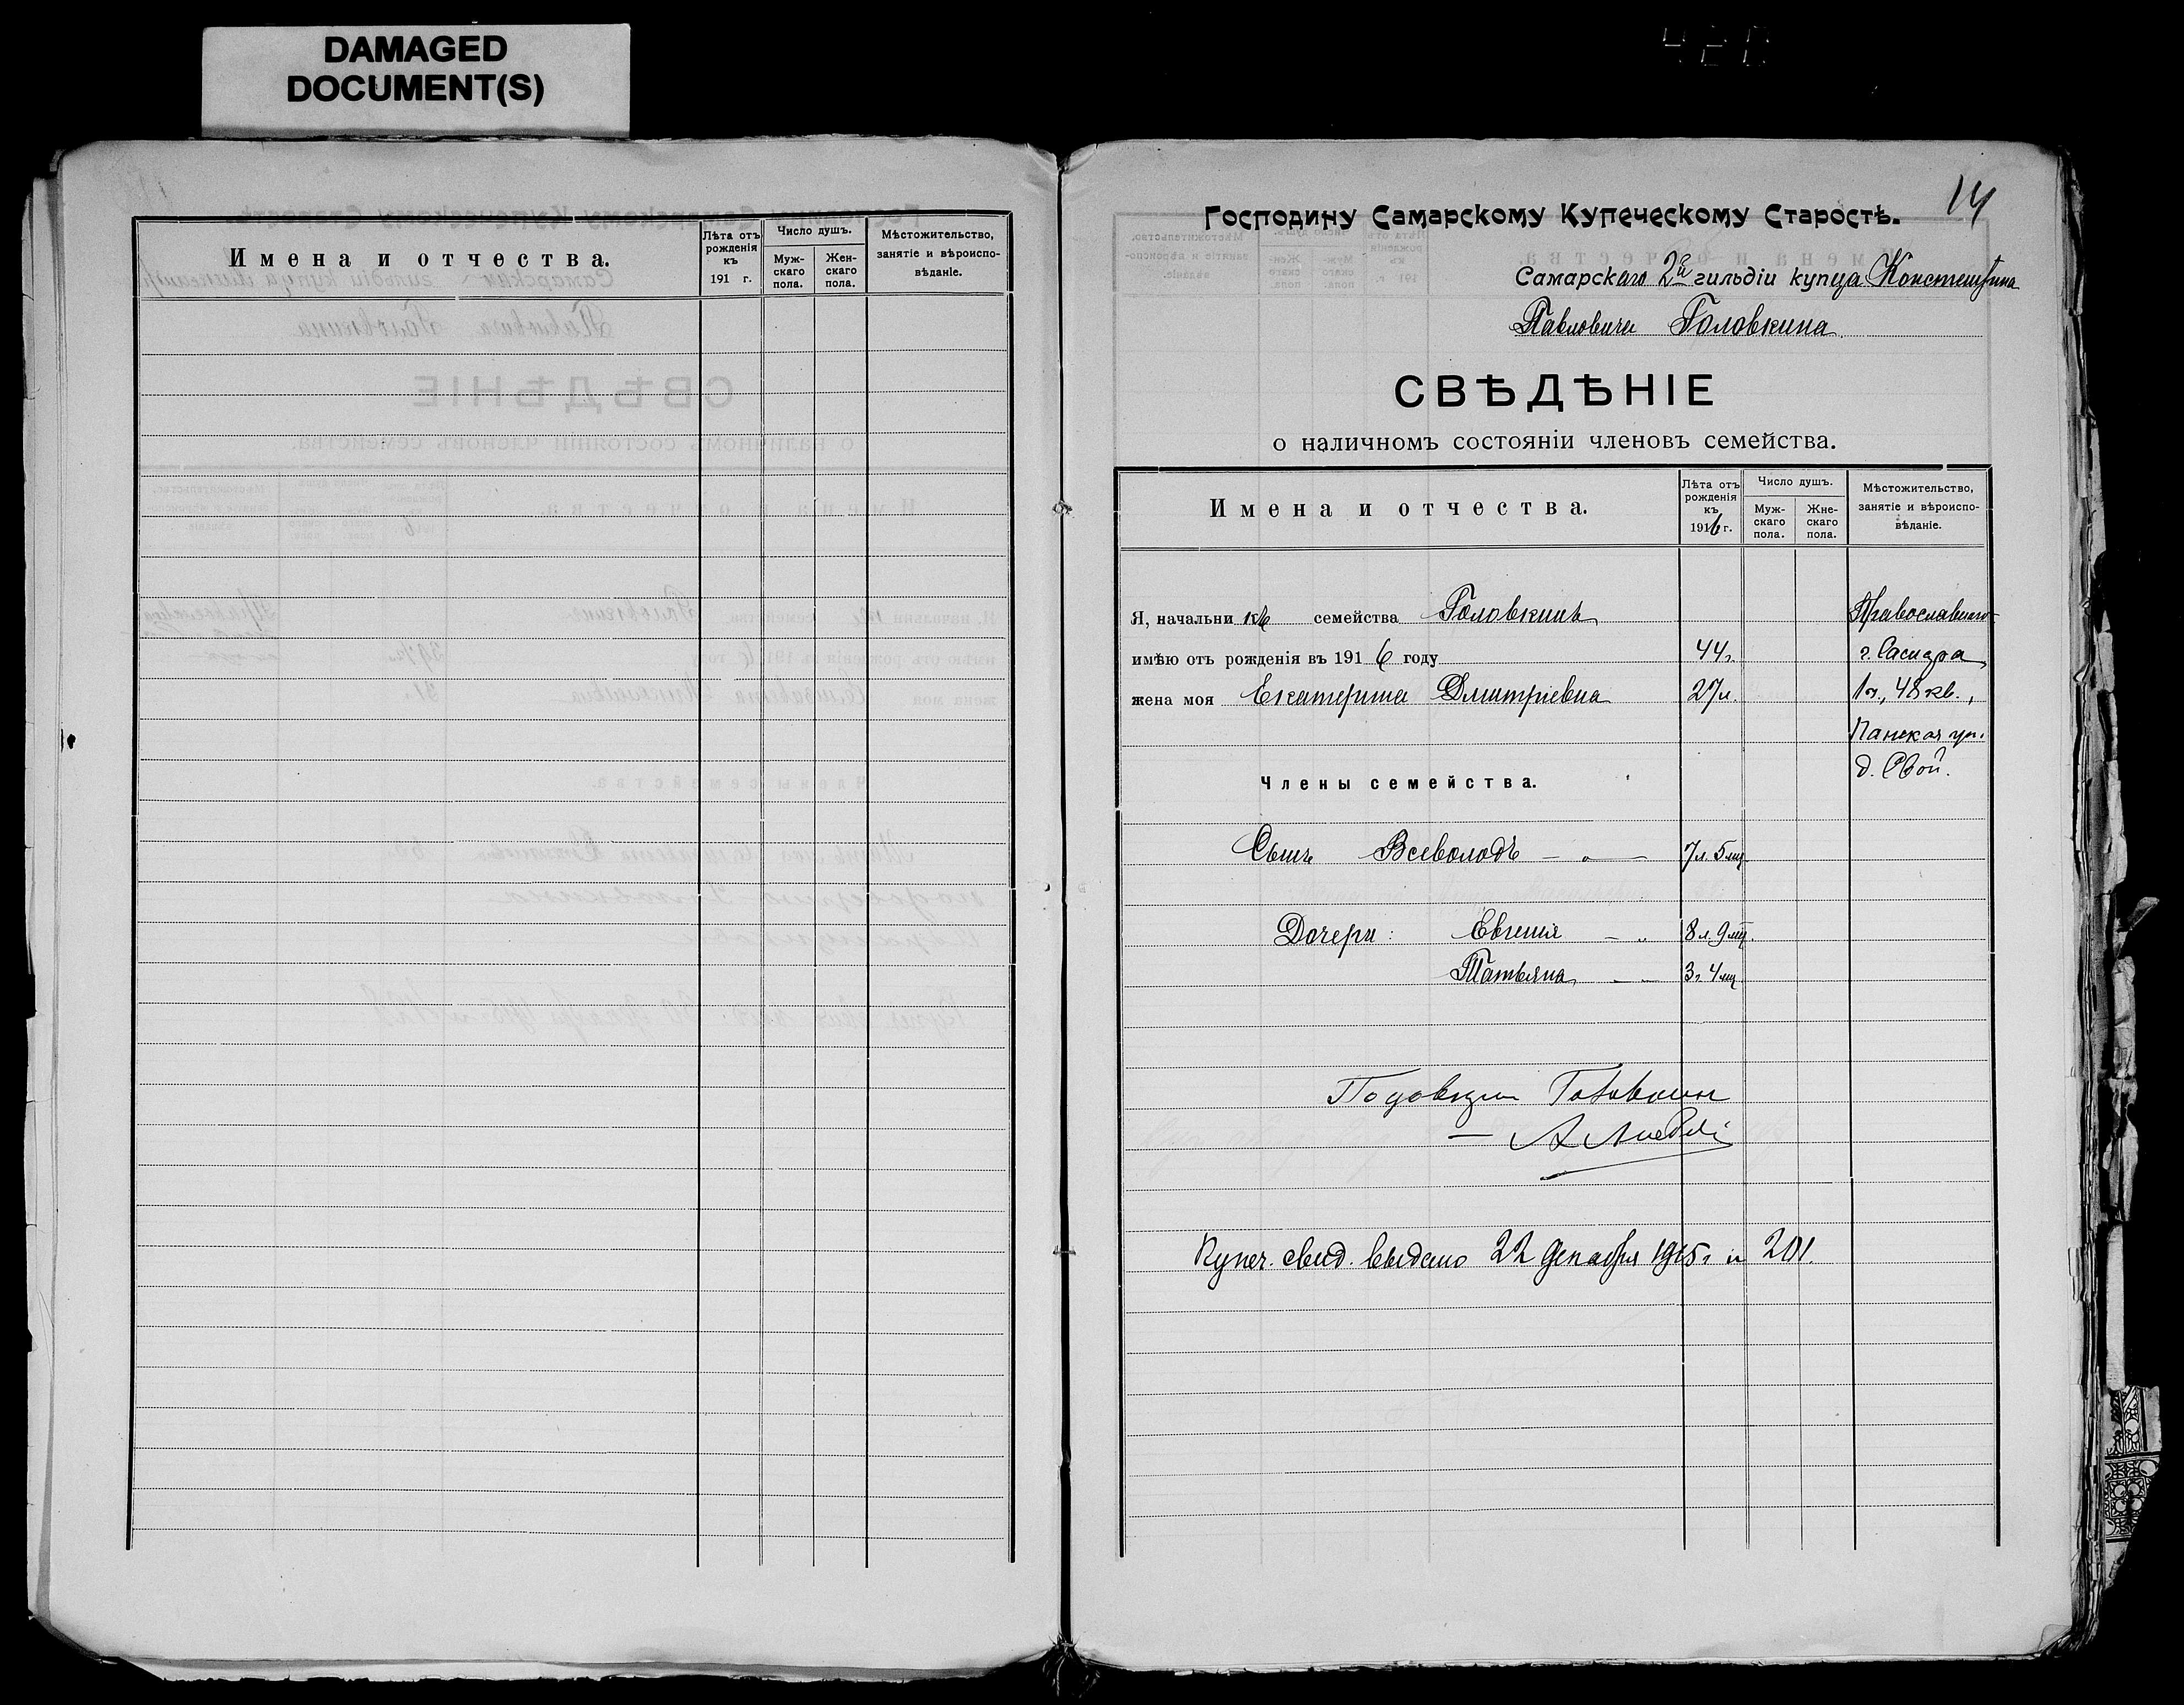 DAMAGED
DOCUMENT(S)
Имена и отчества.
Лѣта отъ рожденія къ 191 г.
Число душъ.
Муж-скаго пола.
Жен-скаго пола.
Мѣстожительство, занятіе и вѣроиспо-вѣданіе.
14
Господину Самарскому Купеческому Старостѣ.
Самарскаго 2й гильдіи купца Константина
Павловича Головкина
СВѢДѢНІЕ
о наличномъ состояніи членовъ семейства.
Имена и отчества.
Лѣта отъ рожденія къ 1916 г.
Число душъ.
Муж-скаго пола.
Жне-скаго пола.
Мѣстожительство, занятіе и вѣроиспо-вѣданіе.
Я, начальникъ семейства Головкинъ Православнаго
имѣю отъ рожденія въ 1916 году 44 г. г. Самара
жена моя Екатерина Дмитріевна 27 л. 1 ч., 48 кв.,
Панская ул.
д. Свой.
Члены семейства.
Сынъ Всеволодъ — „ — 7 л. 5 мц.
Дочери: Евгенія — „ 8 л. 9 мц.
Татьяна — „ 3 г. 4 мц.
Головкин
Купеч. свид. выдано 22 декабря 1915 г. № 201.